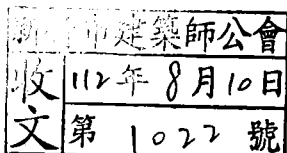 新 市建築師公會
收文
112年8月10日
第1022號